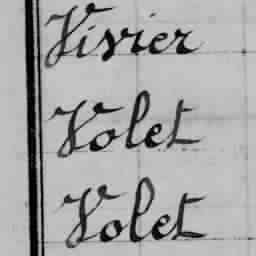 Vivier
Volet
Volet